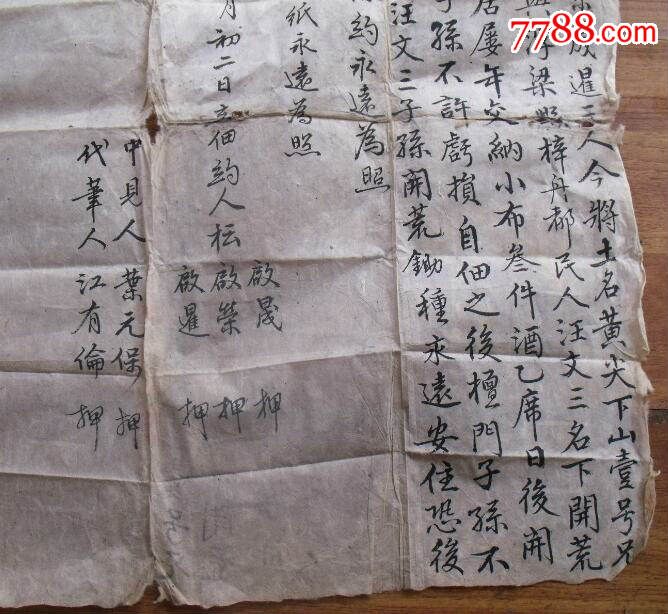 7788.com
晟暹三人今將土名黃尖下山壹号
浮梁縣梓舟都民人汪文三名下開荒
居屡年交納小布叁件酒乙席日後開
子孫不許虧損自佃之後檀門子孫不
汪文三子孫開荒鋤種永遠安住恐後
約永遠為照
紙永遠為照
月初二日立佃約人枟
啟晟 押
啟榮 押
啟暹 押
中見人葉元保 押
代筆人江有倫 押